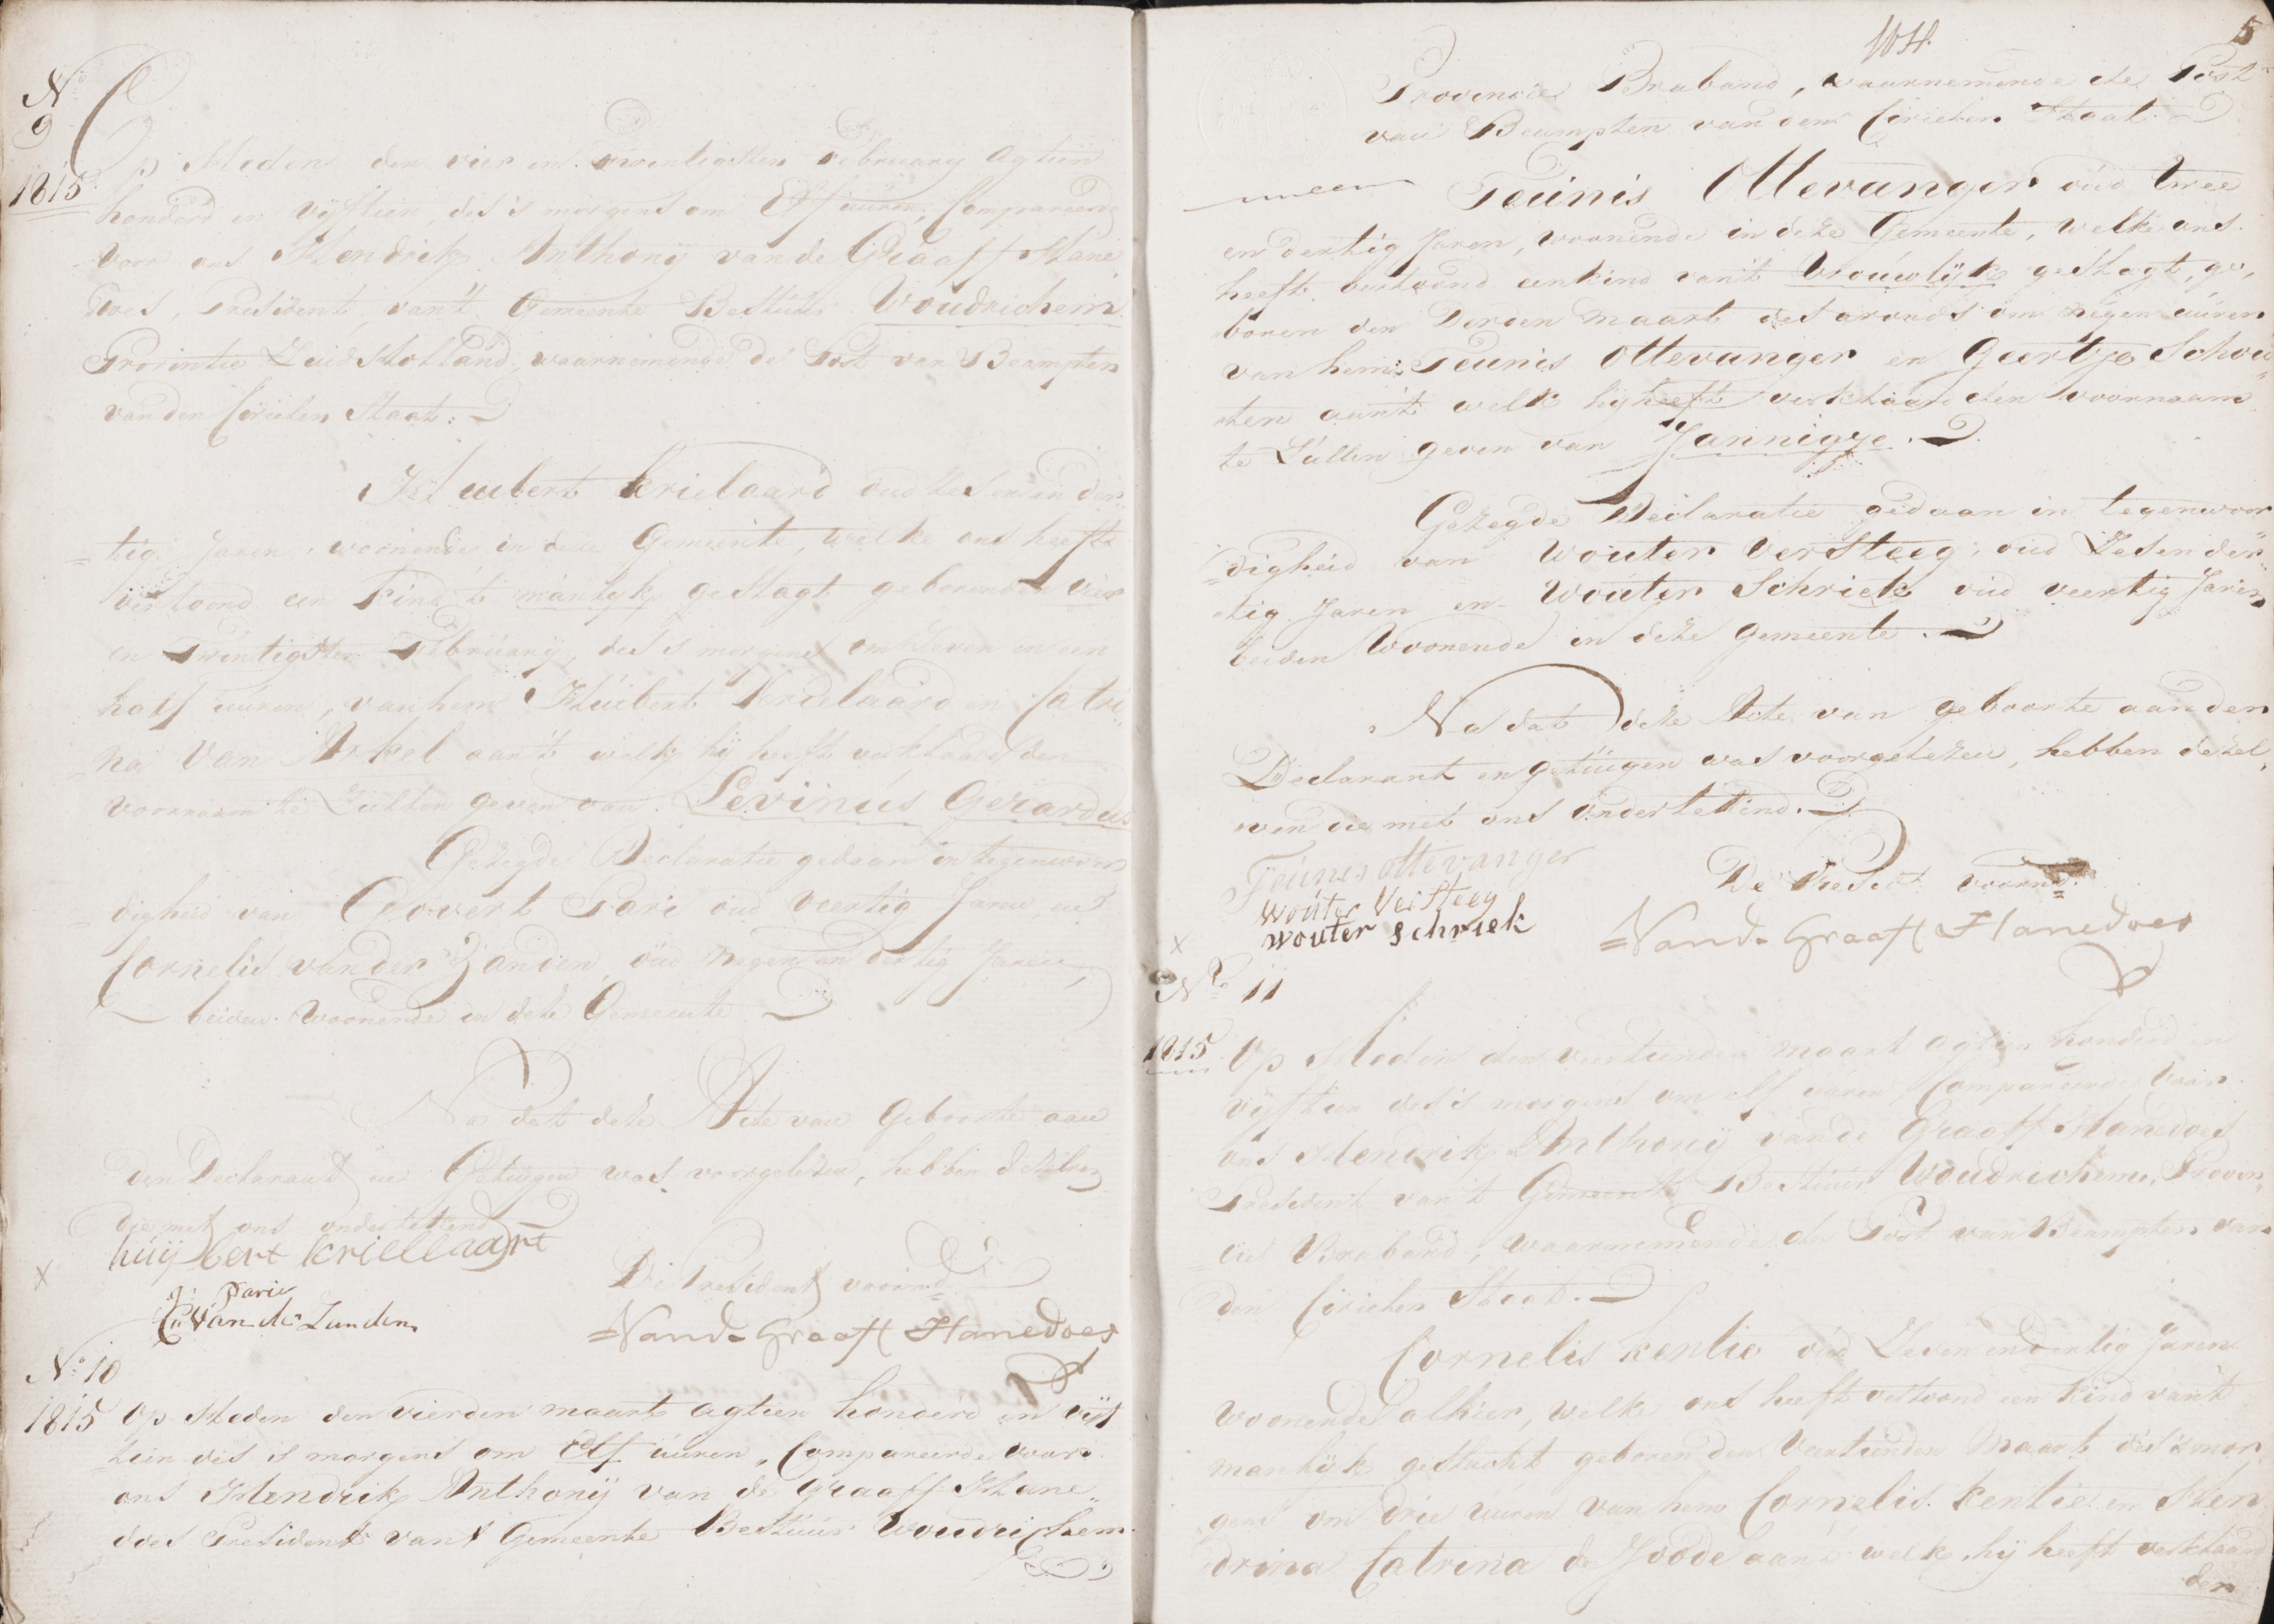 No
9
1815
Op Heden den vier en twintigsten February agtien
honderd en vyftien, des 's morgens om Elf uuren, Compareerde
voor ons Hendrik Anthony van de Graaff Hane„
does, President van 't Gemeente Bestuur Woudrichem
Provintie Zuid Holland, waarnemende de Post van Beampten
van den Civielen Staat.
Huibert Krielaard oud Zes en der„
tig Jaren, woonende in deze Gemeente, welke ons heeft
vertoond een Kind 't manlyk geslagt geboren den vier
en Twintigsten February, des 's morgens om Zeven en een
half uuren, van hem Huibert Krielaard en Catri„
na Van Arkel aan 't welk hy heeft verklaard den
voornaam te Zullen geven van Levinus Gerardus
Gezegde Declaratie gedaan in tegenwoor„
digheid van Govert Parie oud veertig Jaren en
Cornelis van der Zanden, oud negen en dertig Jaren,
beiden woonende in deze Gemeente
Na dat deze Acte van Geboorte aan
den Declarant en Getuigen was voorgelezen, hebben dezelven
die met ons ondertekend
huijbert kriellaart
G: Parie
C: Van der Zanden
De President voornd
Vand Graaff Hanedoes
No 10
1815 Op Heden den vierden maart agtien honderd en vijf
tien des 's morgens om Elf uuren, Compareerde voor
ons Hendrik Anthonij van de Graaff Hane„
does President van 't Gemeente Bestuur Woudrichem
104. 5
Provincie Braband, waarnemende de Post
van Beampten van den Civielen Staat.
Teunis Ottevanger oud twee
en dertig Jaren, woonende in deze Gemeente, welke ons
heeft vertoond een kind van 't Vrouwlijk geslagt, ge„
boren den Derden maart des avonds om negen uuren
van hem Teunis Ottevanger en Geertje Schou„
ten aan 't welk hij heeft verklaard den voornaam
te Zullen geven van Jannigje.
Gezegde Declaratie gedaan in tegenwoor„
digheid van Wouter Versteeg, oud Zes en der„
tig Jaren en Wouter Schriek oud veertig Jaren
beiden Woonende in deze Gemeente.
Na dat deze Acte van geboorte aan den
Declarant en getuigen was voorgelezen, hebben dezel„
ven die met ons ondertekend.
Teunes ottevanger
Wouter Versteeg
wouter schriek
De Presidt voornd.
Vand Graaff Hanedoes
No 11
1815 Op Heden den veertienden maart agtien honderd en
vyftien des 's morgens om elf uuren Compareerde voor
ons Hendrik Anthony van de Graaff Hanedoes
President van 't Gemeente Bestuur Woudrichem, Provin„
cie Braband, waarnemende de Post van Beampten van
den Civielen Staat.
Cornelis Kentie oud Zeven en dertig Jaren
woonende alhier, welke ons heeft vertoond een Kind van 't
manlijk geslacht geboren den Veertienden Maart des 's mor„
gens om drie uuren van hem Cornelis Kentie en Hen„
drina Catrina de Joode aan 't welk hij heeft verklaard
den